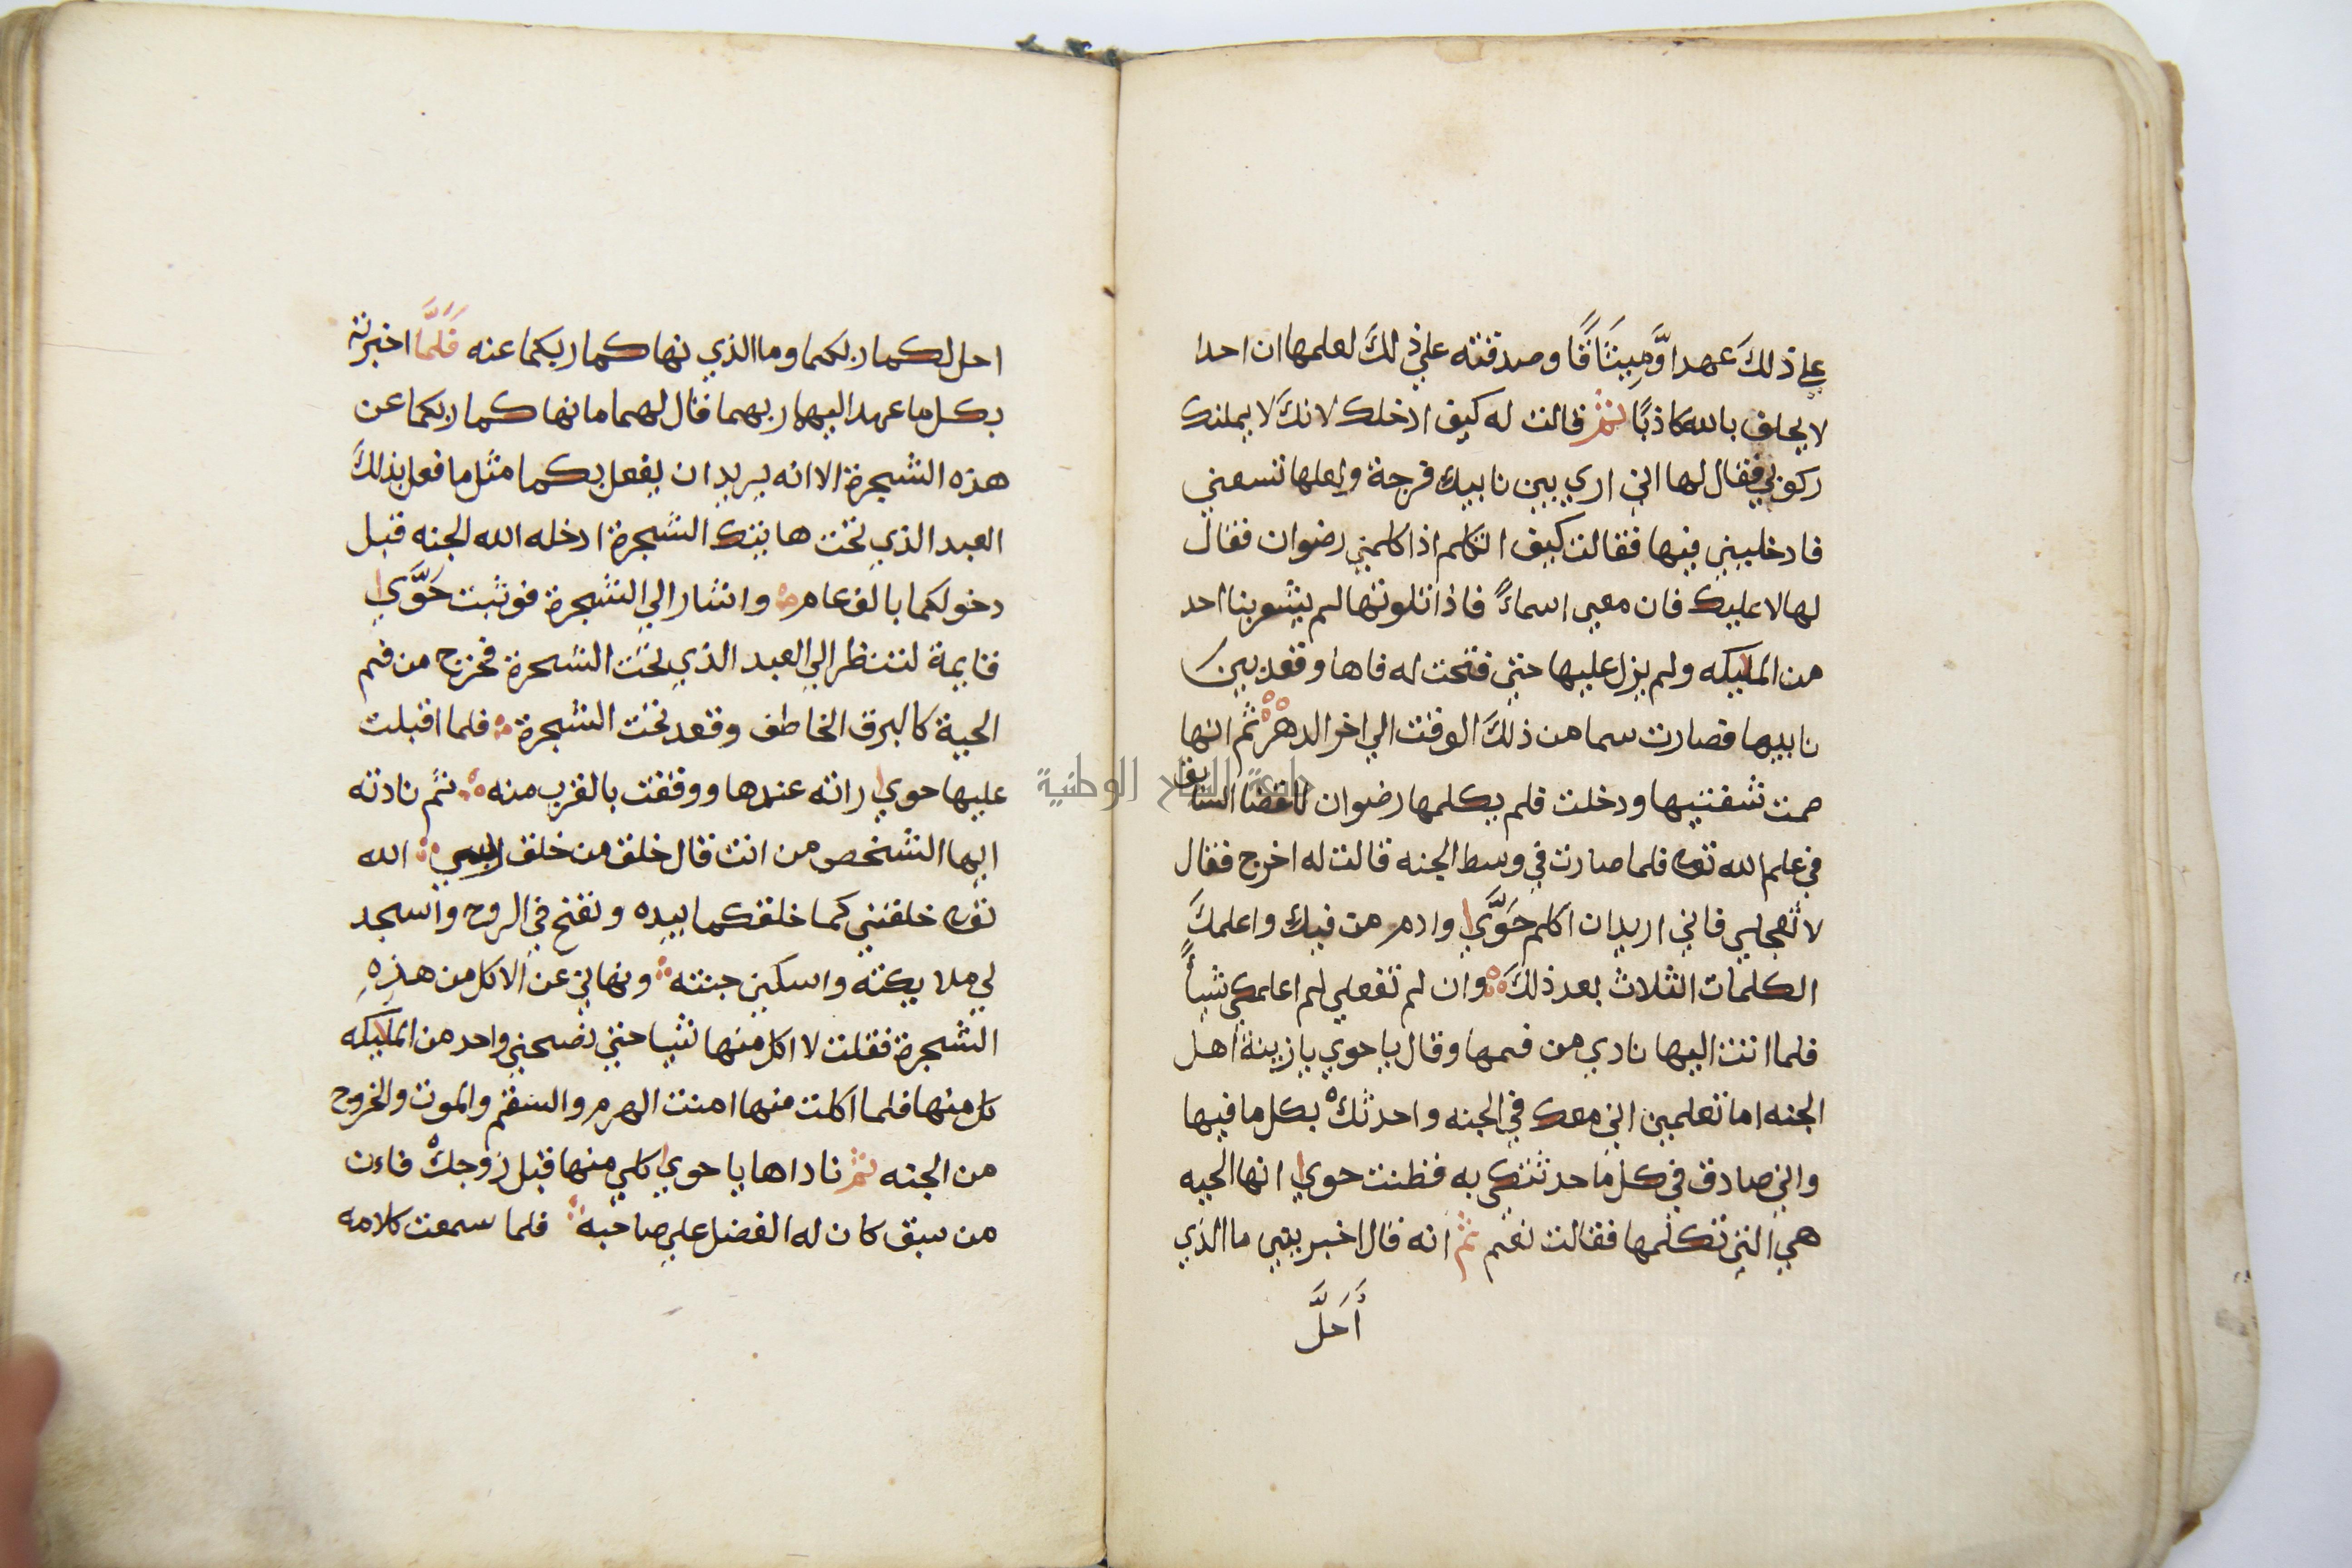 علي ذلكَ عهدا وَّمِيثَاقًا وصدقته علي ذلكَ لعلمها ان احدا
لا يحلف بالله كاذبًا ثم قالت له كيف ادخلك لانكَ لا يمكنك
ركوبي فقال لها اني اري بين نابيك فرجة ولعلها تسعني
فادخليني فيها فقالت كيف اتكلم اذا كلمني رضوان فقال
لها لا عليك فان معي اسماءً فاذا تلوتها لم يشعر بنا احد
من الملايكه ولم يزل عليها حتي فتحت له فاها وقعد بين
نابيها فصارت سما من ذلكَ الوقت الي اخر الدهر ثم انها
ضمت شفتيها ودخلت فلم يكلمها رضوان للقضا السابق
في علم الله تعالى فلما صارت في وسط الجنه قالت له اخرج فقال
لا تعجلي فاني اريد ان اكلم حَوَّي وادم من فيك واعلمكَ
الكلمات الثلاث بعد ذلكَ وان لم تفعلي لم اعلمك شيأً
فلما اتت اليها نادي من فمها وقال يا حوي يا زينة اهل
الجنه اما تعلمين اني معك في الجنه واحدثك بكل ما فيها
واني صادق في كل ما حدثتك به فظنت حوي انها الحيه
هي التي تكلمها فقالت نعم ثم انه قال اخبريني ما الذي
أَحَلَّ
احل لكما ربكما وما الذي نهاكما ربكما عنه فَلَمَّا اخبرته
بكل ما عهد اليهما ربهما قال لهما ما نهاكما ربكما عن
هذه الشجرة الا انه يريد ان يفعل بكما مثل ما فعل بذلكَ
العبد الذي تحت هاتيك الشجرة ادخله الله الجنه قبل
دخولكما بالف عام واشار الي الشجرة فوثبت حَوَّي
قايمة لتنظر الي العبد الذي تحت الشجرة فخرج من فم
الحية كالبرق الخاطف وقعد تحت الشجرة فلما اقبلت
عليها حوي راته عندها ووقفت بالقرب منه ثم نادته
ايها الشخص من انت قال خلق من خلق الله
تعالى خلقني كما خلقكما بيده ونفخ في الروح واسجد
لي ملايكته واسكني جنته ونهاني عن الاكل من هذِهِ
الشجرة فقلت لا اكل منها شيا حتي نصحني واحد من الملايكه
كل منها فلما اكلت منها امنت الهرم والسقم والموت والخروج
من الجنه ثم ناداها يا حوي كلي منها قبل زوجك فان
من سبق كان له الفضل علي صاحبه فلما سمعت كلامه
جامعة النجاح الوطنية